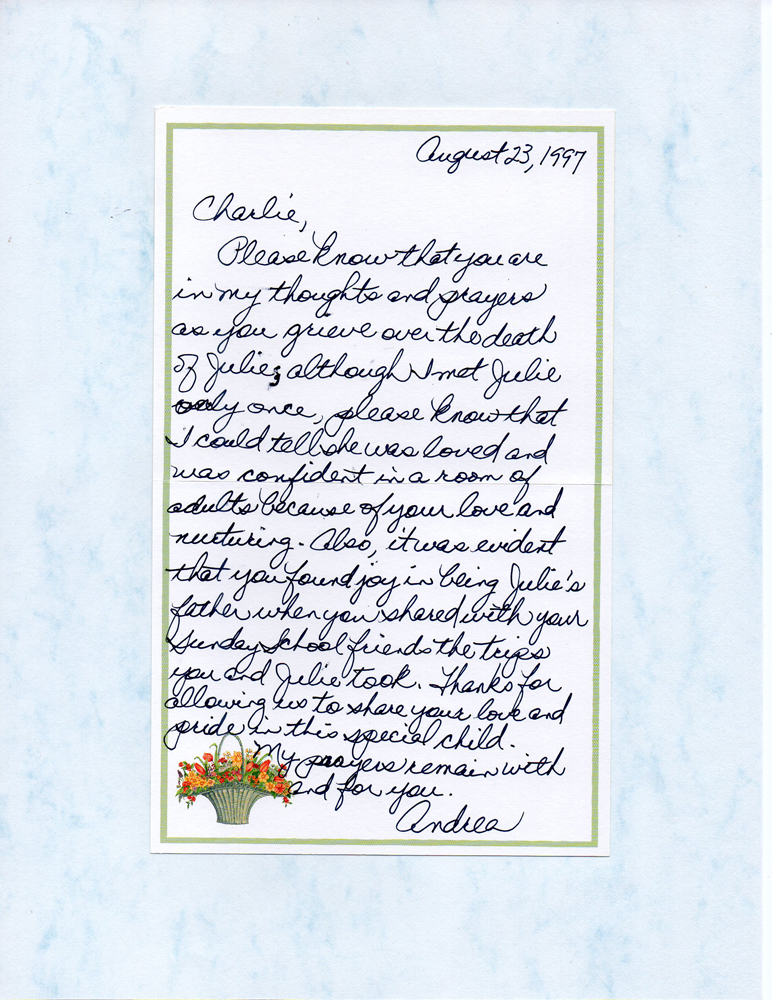 August 23, 1997
Charlie,
Please know that you are
in my thoughts and prayers
as you grieve over the death
of Julie; although I met Julie
only once, please know that
I could tell she was loved and
was confident in a room of
adults because of your love and
nurturing. Also, it was evident
that you found joy in being Julie's
father when you shared with your
Sunday School friends the trips
you and Julie took. Thanks for
allowing us to share your love and
pride in this special child.
My prayers remain with
and for you.
Andrea